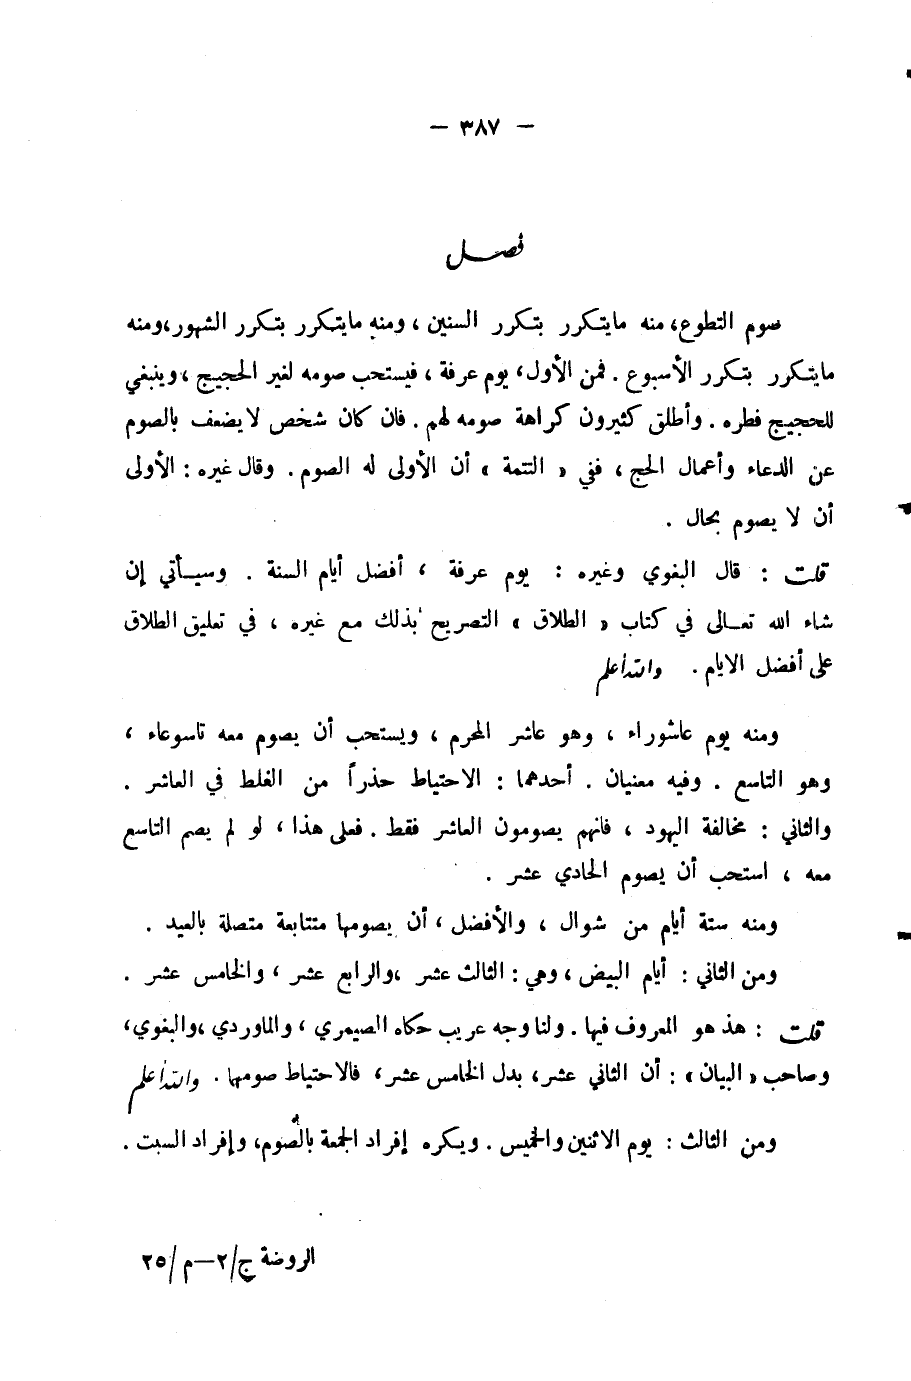 — ٣٨٧ —
فصل
صوم التطوع، منه مايتكرر بتكرر السنين ، ومنه مايتكرر بتكرر الشهور،ومنه
مايتكرر بتكرر الأسبوع . فمن الأول، يوم عرفة ، فيستحب صومه لغير الحجيج ، وينبغي
للحجيج فطره . وأطلق كثيرون كراهة صومه لهم . فان كان شخص لا يضعف بالصوم
عن الدعاء وأعمال الحج ، ففي « التتمة » أن الأولى له الصوم . وقال غيره : الأولى
أن لا يصوم بحال .
قلت : قال البغوي وغيره : يوم عرفة ، أفضل أيام السنة . وسيأتي إن
شاء الله تعالى في كتاب « الطلاق » التصريح بذلك مع غيره ، في تعليق الطلاق
على أفضل الايام . والله أعلم
ومنه يوم عاشوراء ، وهو عاشر المحرم ، ويستحب أن يصوم معه تاسوعاء ،
وهو التاسع . وفيه معنيان . أحدهما : الاحتياط حذراً من الغلط في العاشر .
والثاني : مخالفة اليهود ، فانهم يصومون العاشر فقط . فعلى هذا ، لو لم يصم التاسع
معه ، استحب أن يصوم الحادي عشر .
ومنه ستة أيام من شوال ، والأفضل ، أن يصومها متتابعة متصلة بالعيد .
ومن الثاني : أيام البيض ، وهي : الثالث عشر ،والرابع عشر ، والخامس عشر .
قلت : هذ هو المعروف فيها . ولنا وجه غريب حكاه الصيمري ، والماوردي ،والبغوي،
وصاحب « البيان » : أن الثاني عشر، بدل الخامس عشر، فالاحتياط صومها . والله أعلم
ومن الثالث : يوم الاثنين والخميس . ويكره إفراد الجمعة بالصوم، وإفراد السبت .
الروضة ج/٢–م/٢٥